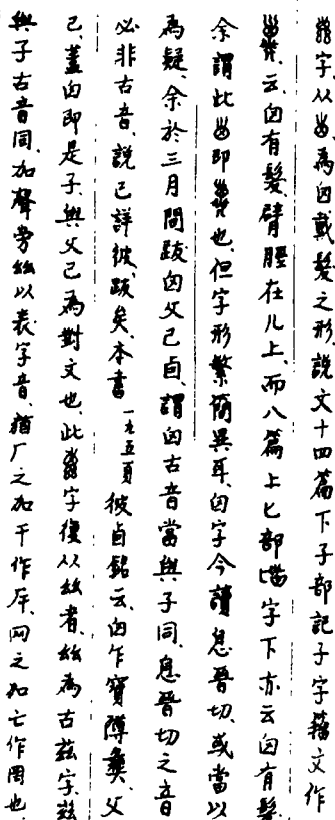 字从、為囟戴髮之形、說文十四篇下子部記子字籀文作
、云、囟有髮、臂脛在几上、而八篇上匕部字下亦云囟有髮、
余謂此即也、但字形繁簡異耳、囟字今讀息晉切、或當以
為疑、余於三月間跋囟父己卣、謂囟古音當與子同、息晉切之音
必非古音、說已詳彼跋矣、本書一九五頁彼卣銘云、囟乍寶彝、父
己、蓋囟即是子、與父己為對文也、此字復从絲者、絲為古茲字、茲
與子古音同、加聲旁絲以表字音、猶厂之加干作厈、网之加亡作罔也、